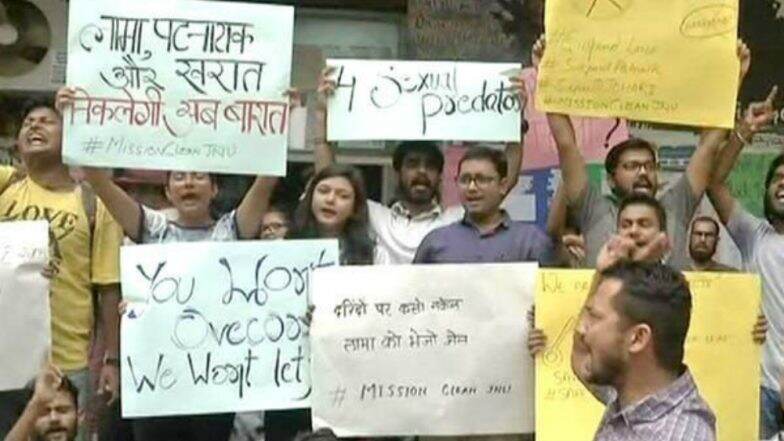 लामा, पटनायक
और खरात
निकलेगी अब बारात
#MISSION CLEAN JNU
4 Sexual
predator
# Suspend Lama
# MISSION CLEAN JNU
LOVE
You Won't
Overcome
We Won't let
दरिंदो पर कसो नकेल
लामा को भेजो जेल
# MISSION CLEAN JNU
We